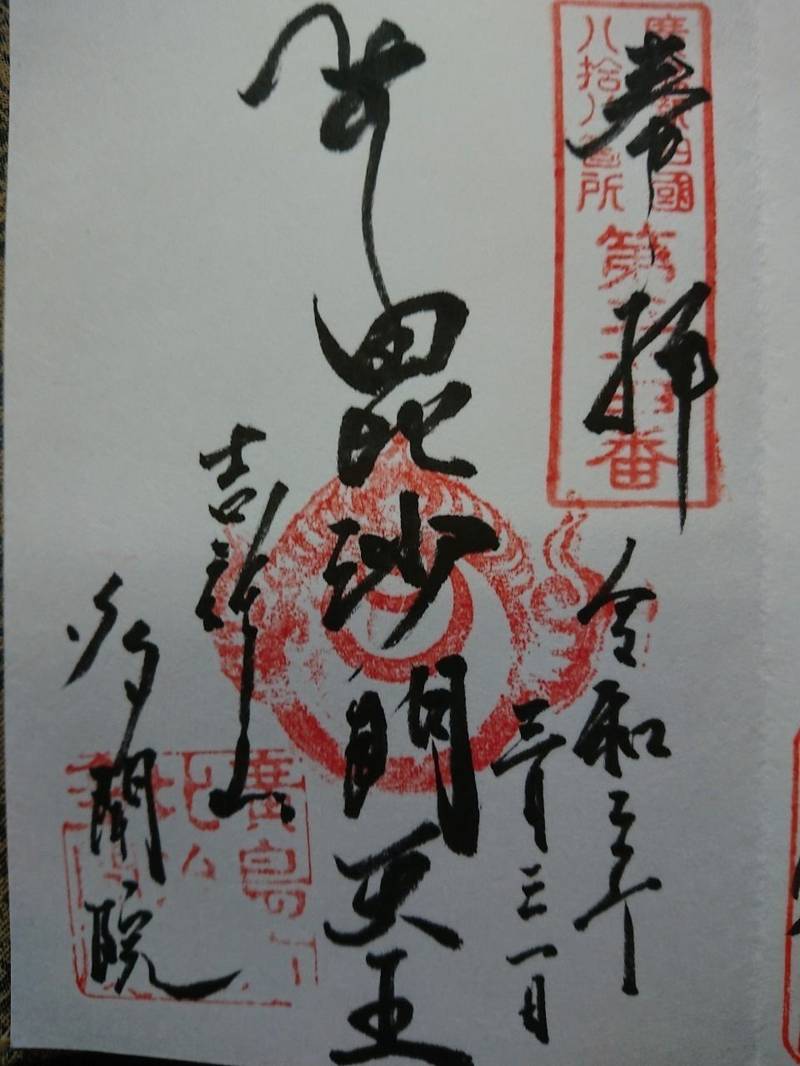 奉拝
八拾八箇所
第
番
令和三年
三月三一日
毘沙門天王
吉祥山
多聞院
廣島